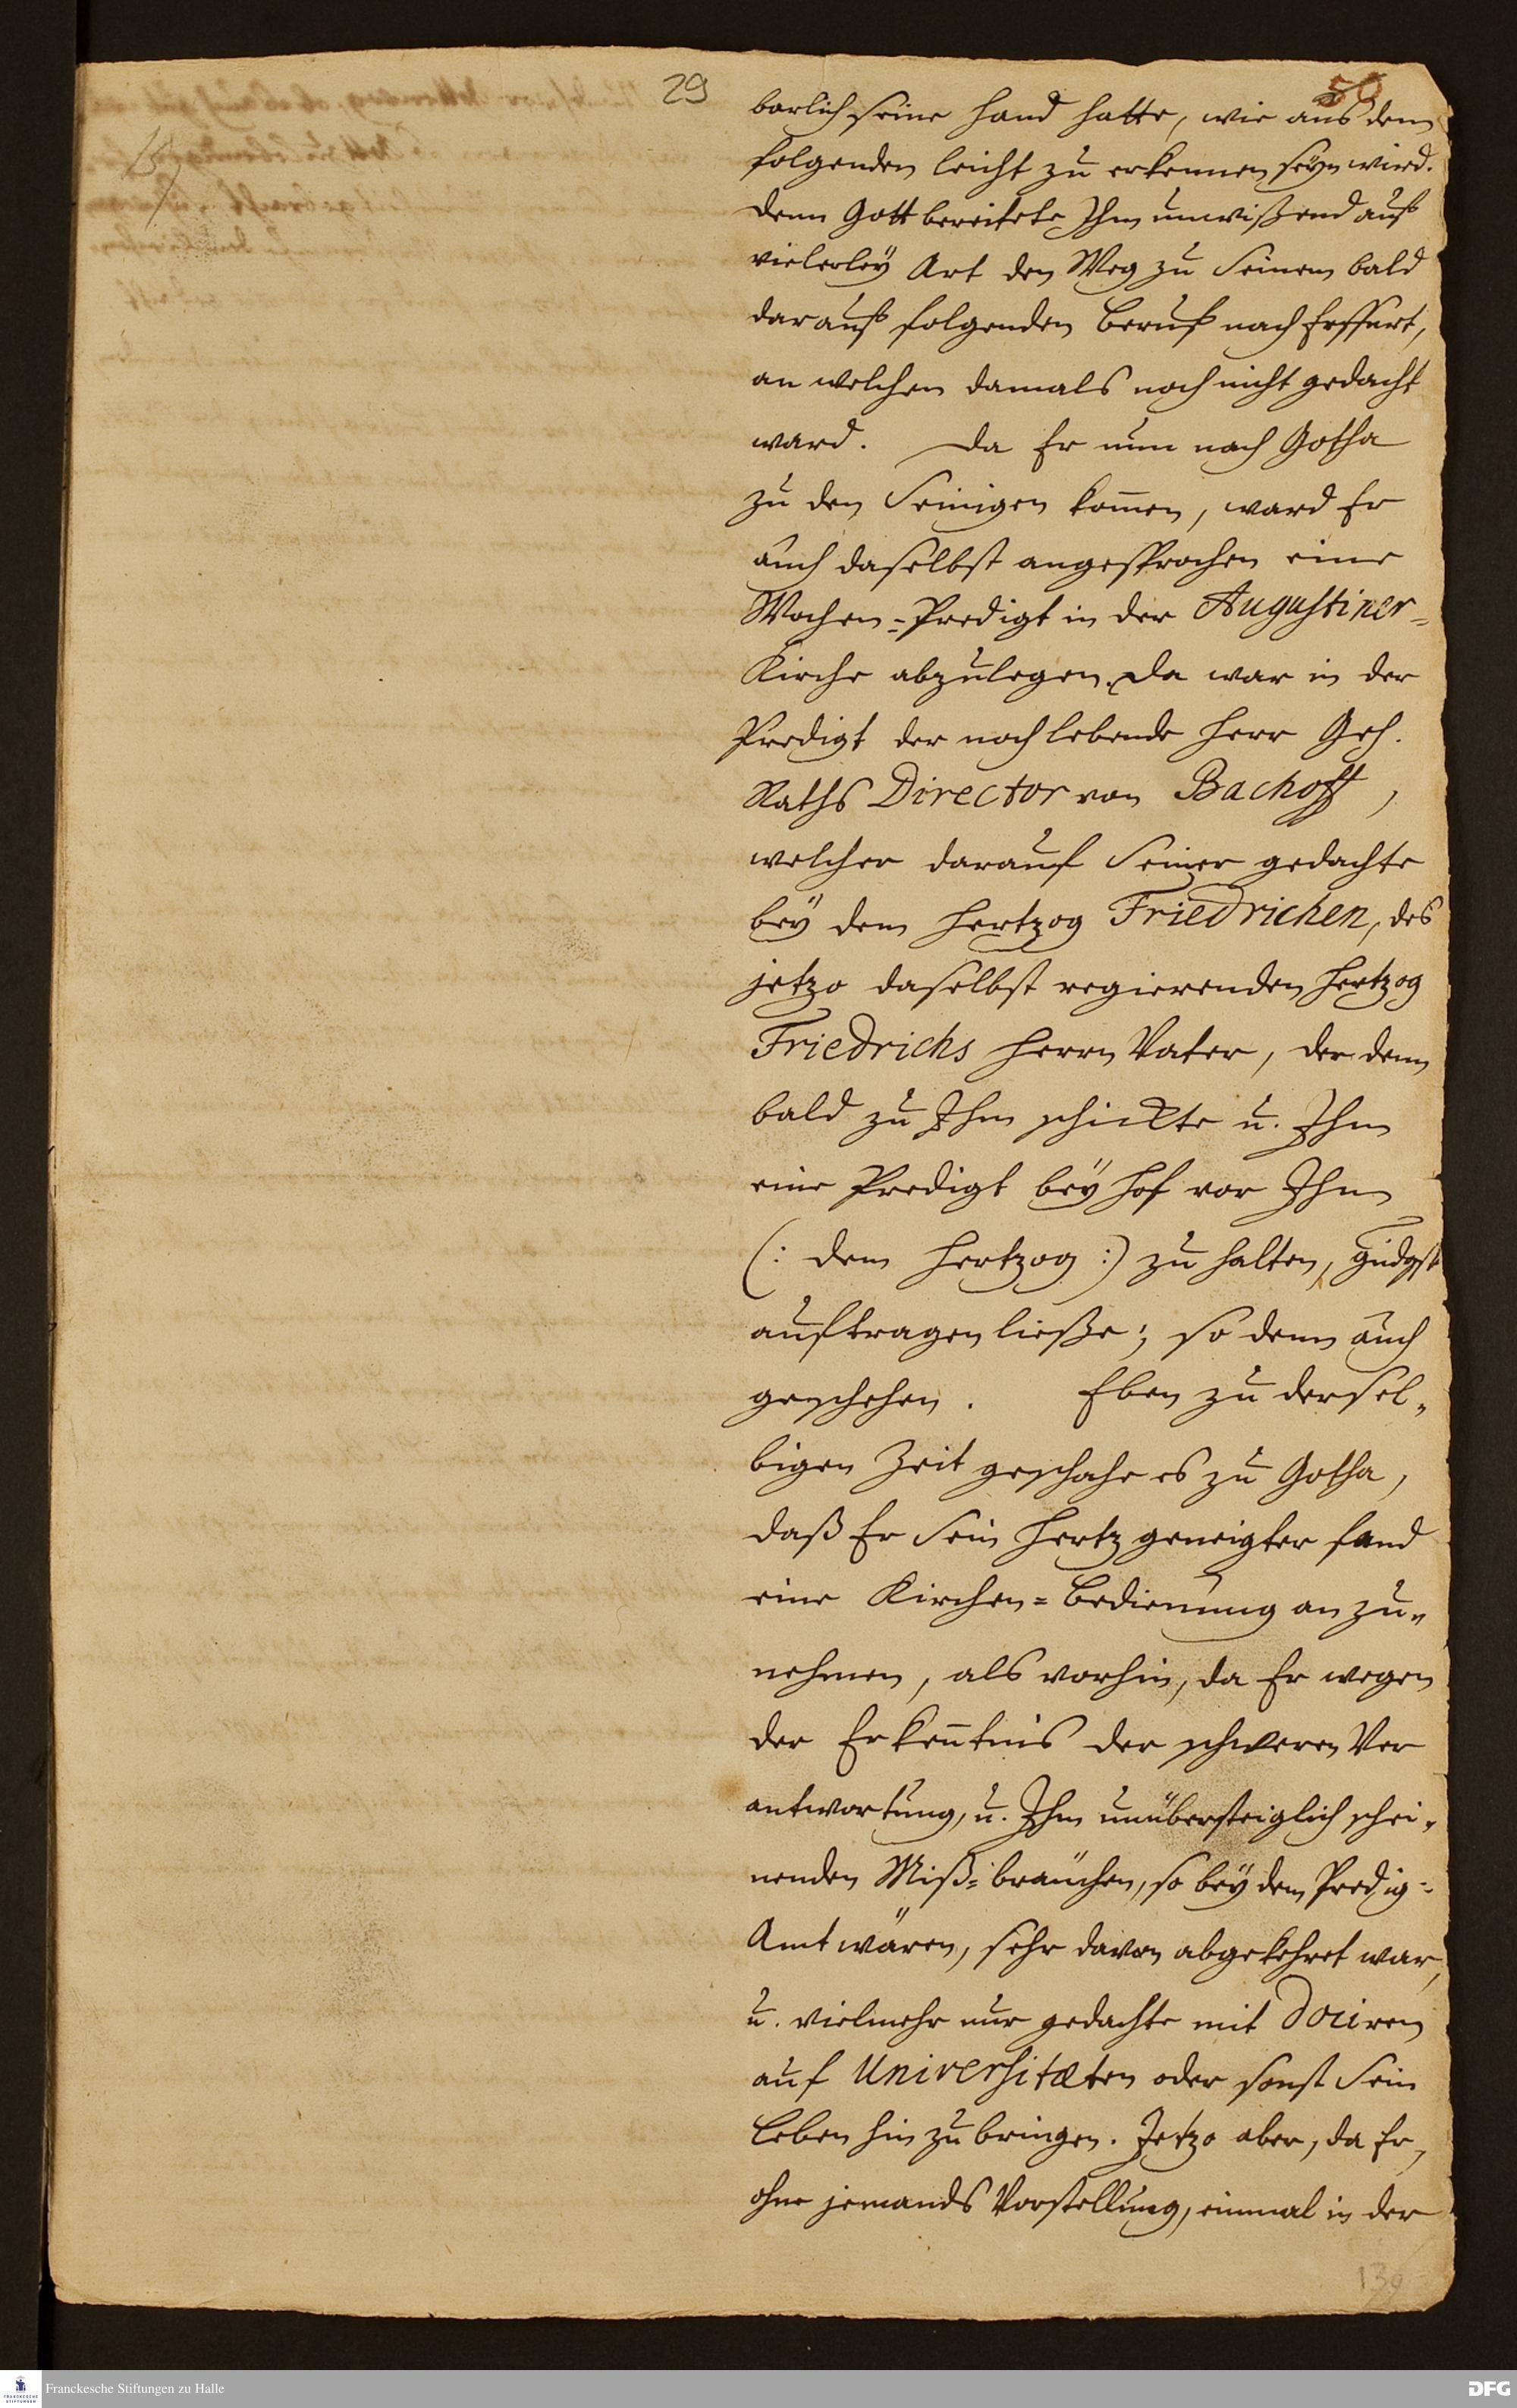 29
50
barlich seine Hand hatte, wie aus dem
folgenden leicht zu erkennen seyn wird.
Denn Gott bereitete Ihm unwißend auf
vielerley Art den Weg zu Seinem bald
darauf folgenden Beruf nach Erffurt,
an welchen damals noch nicht gedacht
ward. Da Er nun nach Gotha
zu den Seinigen kom̄en, ward Er
auch daselbst angesprochen eine
Wochen-Predigt in der Augustiner-
Kirche abzulegen. Da war in der
Predigt der noch lebende Herr Geh.
Raths Director von Bachoff,
welcher darauf Seiner gedachte
bey dem Hertzog Friedrichen, des
jetzo daselbst regierenden Hertzog
Friedrichs Herrn Vater, der denn
bald zu Ihm schickte u. Ihm
eine Predigt bey Hof vor Ihm
(: dem Hertzog :) zu halten, gndgst
auftragen ließe; so denn auch
geschehen. Eben zu dersel-
bigen Zeit geschahe es zu Gotha,
daß Er Sein Hertz geneigter fand
eine Kirchen-Bedienung anzu-
nehmen, als vorhin, da Er wegen
der Erken̄tnis der schweren Ver
antwortung, u. Ihm unübersteiglich schei-
nenden Miß-bräuchen, so bey dem Predig-
Amt wären, sehr davon abgekehret war,
u. vielmehr nur gedachte mit Dociren
auf Universitæten oder sonst Sein
Leben hin zu bringen. Jetzo aber, da Er,
ohne jemands Vorstellung, einmal in der
139
Franckesche Stiftungen zu Halle
DFG